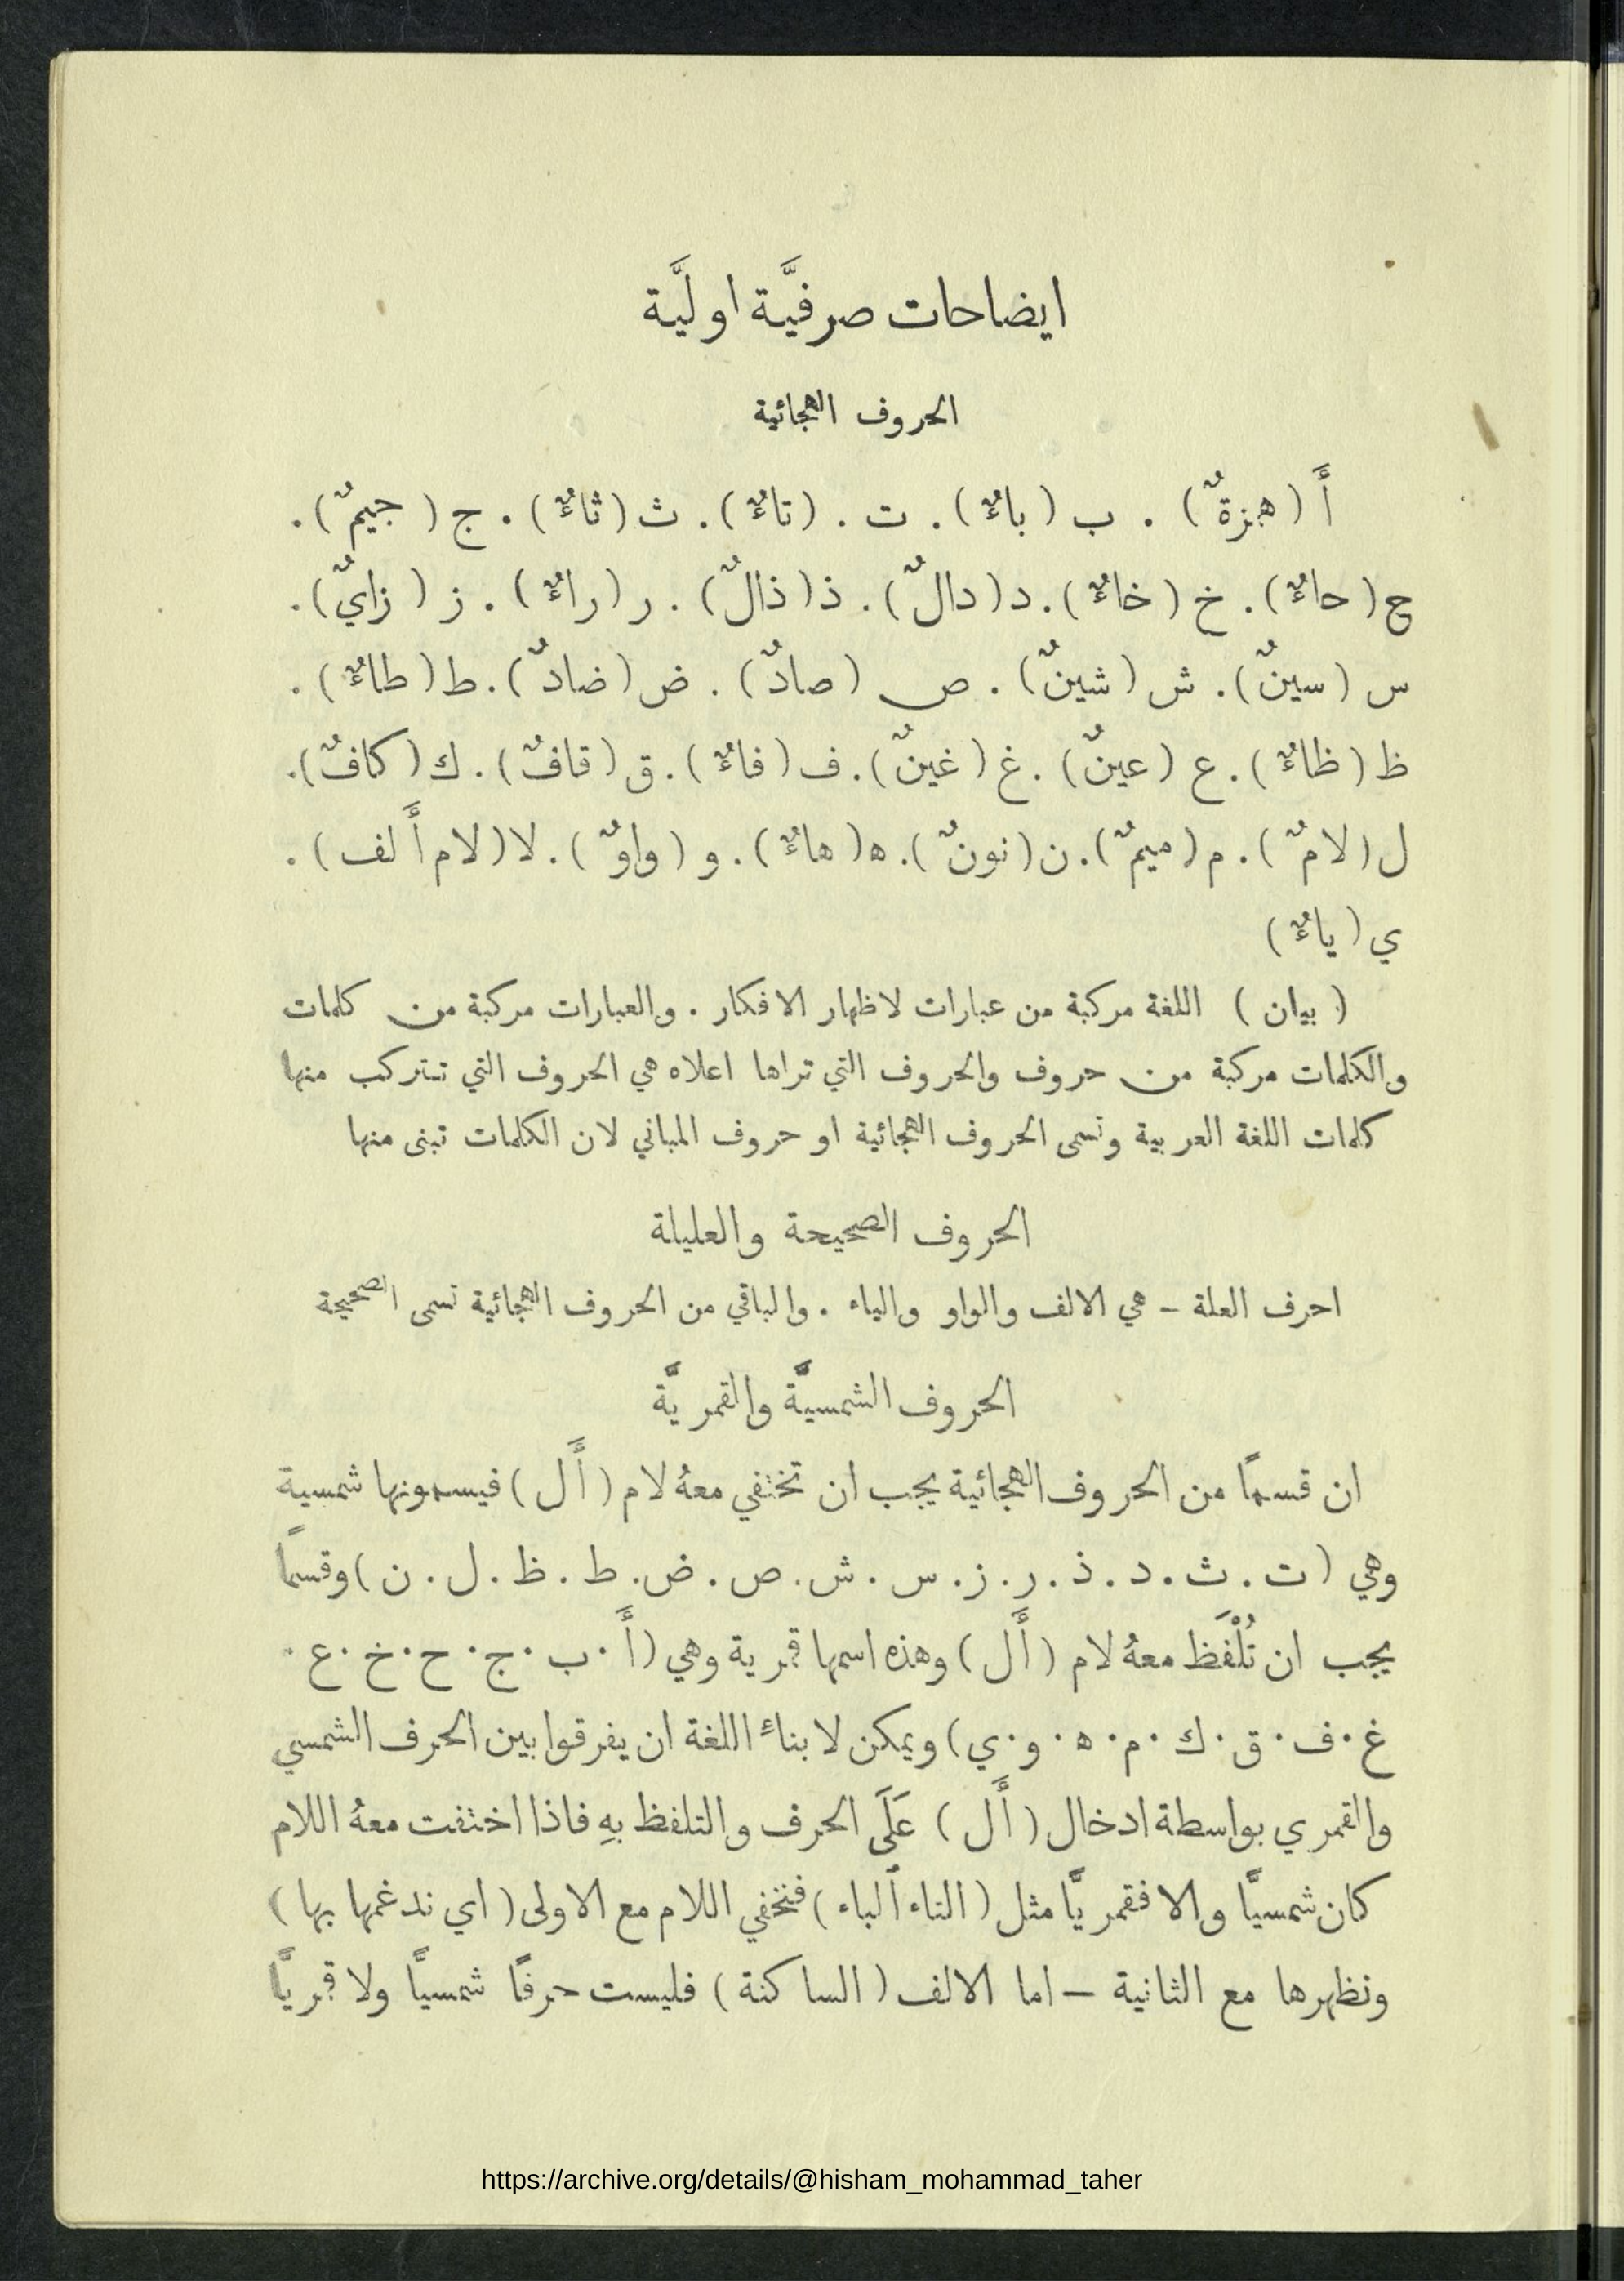 ايضاحات صرفيَّة اوليَّة
الحروف الهجائية
أَ (همزةٌ) . ب (باءٌ) . ت . (تاءٌ) . ث (ثاءٌ) . ج (جيمٌ) .
ح (حاءٌ) . خ (خاءٌ) . د (دالٌ) . ذ (ذالٌ) . ر (راءٌ) . ز (زايٌ) .
س (سينٌ) . ش (شينٌ) . ص (صادٌ) . ض (ضادٌ) . ط (طاءٌ) .
ظ (ظاءٌ) . ع (عينٌ) . غ (غينٌ) . ف (فاءٌ) . ق (قافٌ) . ك (كافٌ) .
ل (لامٌ) . م (ميمٌ) . ن (نونٌ) . ه (هاءٌ) . و (واوٌ) . لا (لام أَلف) .
ي (ياءٌ)
( بيان ) اللغة مركبة من عبارات لاظهار الافكار . والعبارات مركبة من كلمات
والكلمات مركبة من حروف والحروف التي تراها اعلاه هي الحروف التي تتركب منها
كلمات اللغة العربية وتسمى الحروف الهجائية او حروف المباني لان الكلمات تبنى منها
الحروف الصحيحة والعليلة
احرف العلة – هي الالف والواو والياء . والباقي من الحروف الهجائية تسمى الصحيحة
الحروف الشمسيَّة والقمريَّة
ان قسمًا من الحروف الهجائية يجب ان تختفي معهُ لام (أَل) فيسمونها شمسية
وهي (ت . ث . د . ذ . ر . ز . س . ش . ص . ض . ط . ظ . ل . ن) وقسمًا
يجب ان تُلْفَظ معهُ لام (أَل) وهذه اسمها قمرية وهي (أَ . ب . ج . ح . خ . ع .
غ . ف . ق . ك . م . ه . و . ي) ويمكن لابناءِ اللغة ان يفرقوا بين الحرف الشمسي
والقمري بواسطة ادخال (أَل) عَلَى الحرف والتلفظ بهِ فاذا اختفت معهُ اللام
كان شمسيًّا والا فقمريًّا مثل (التاء ألباء) فتختفي اللام مع الاولى (اي ندغمها بها)
ونظهرها مع الثانية – اما الالف (الساكنة) فليست حرفًا شمسيًّا ولا قمريًّا
https://archive.org/details/@hisham_mohammad_taher